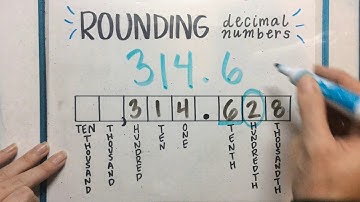 ROUNDING decimal numbers
314.6
, 3 1 4 . 6 2 8
TEN THOUSAND
THOUSAND
HUNDRED
TEN
ONE
TENTH
HUNDREDTH
THOUSANDTH